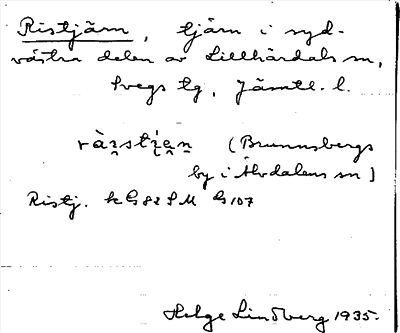 Ristjärn, tjärn i syd-
västra delen av Lillhärdals sn,
Svegs tg, Jämtl. l.
(Brunnsbergs
by i Älvdalens sn)
Ristj. k G 82 S M G 107
Helge Lindberg 1935.